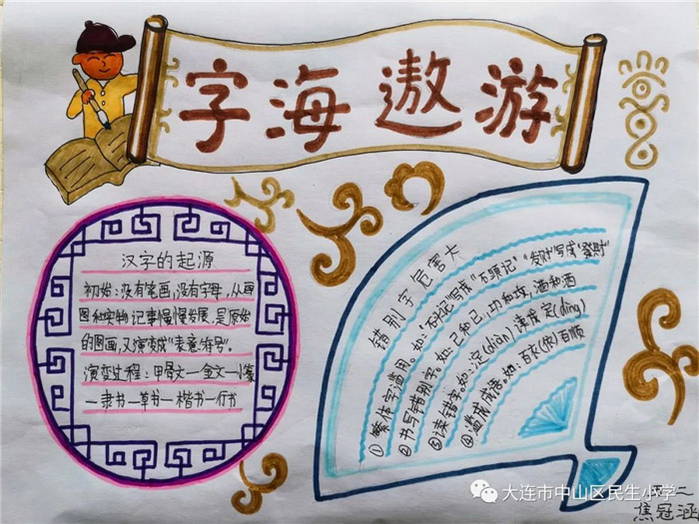 字海遨游
汉字的起源
初始：没有笔画，没有字母，从画
图和实物记事慢慢发展，是原始
的图画，又演变成“表意符号”。
演变过程：甲骨文—金文—小篆
—隶书—草书—楷书—行书
错别字危害大
①繁体字滥用。如：“石头记”写成“石頭記”“发财”写成“發財”
②书写错别字。如：己和已，功和攻，酒和洒
③读错字。如：淀(diàn)读成定(dìng)
④滥成语。如：百衣(依)百顺
大连市中山区民生小学
二
焦冠涵